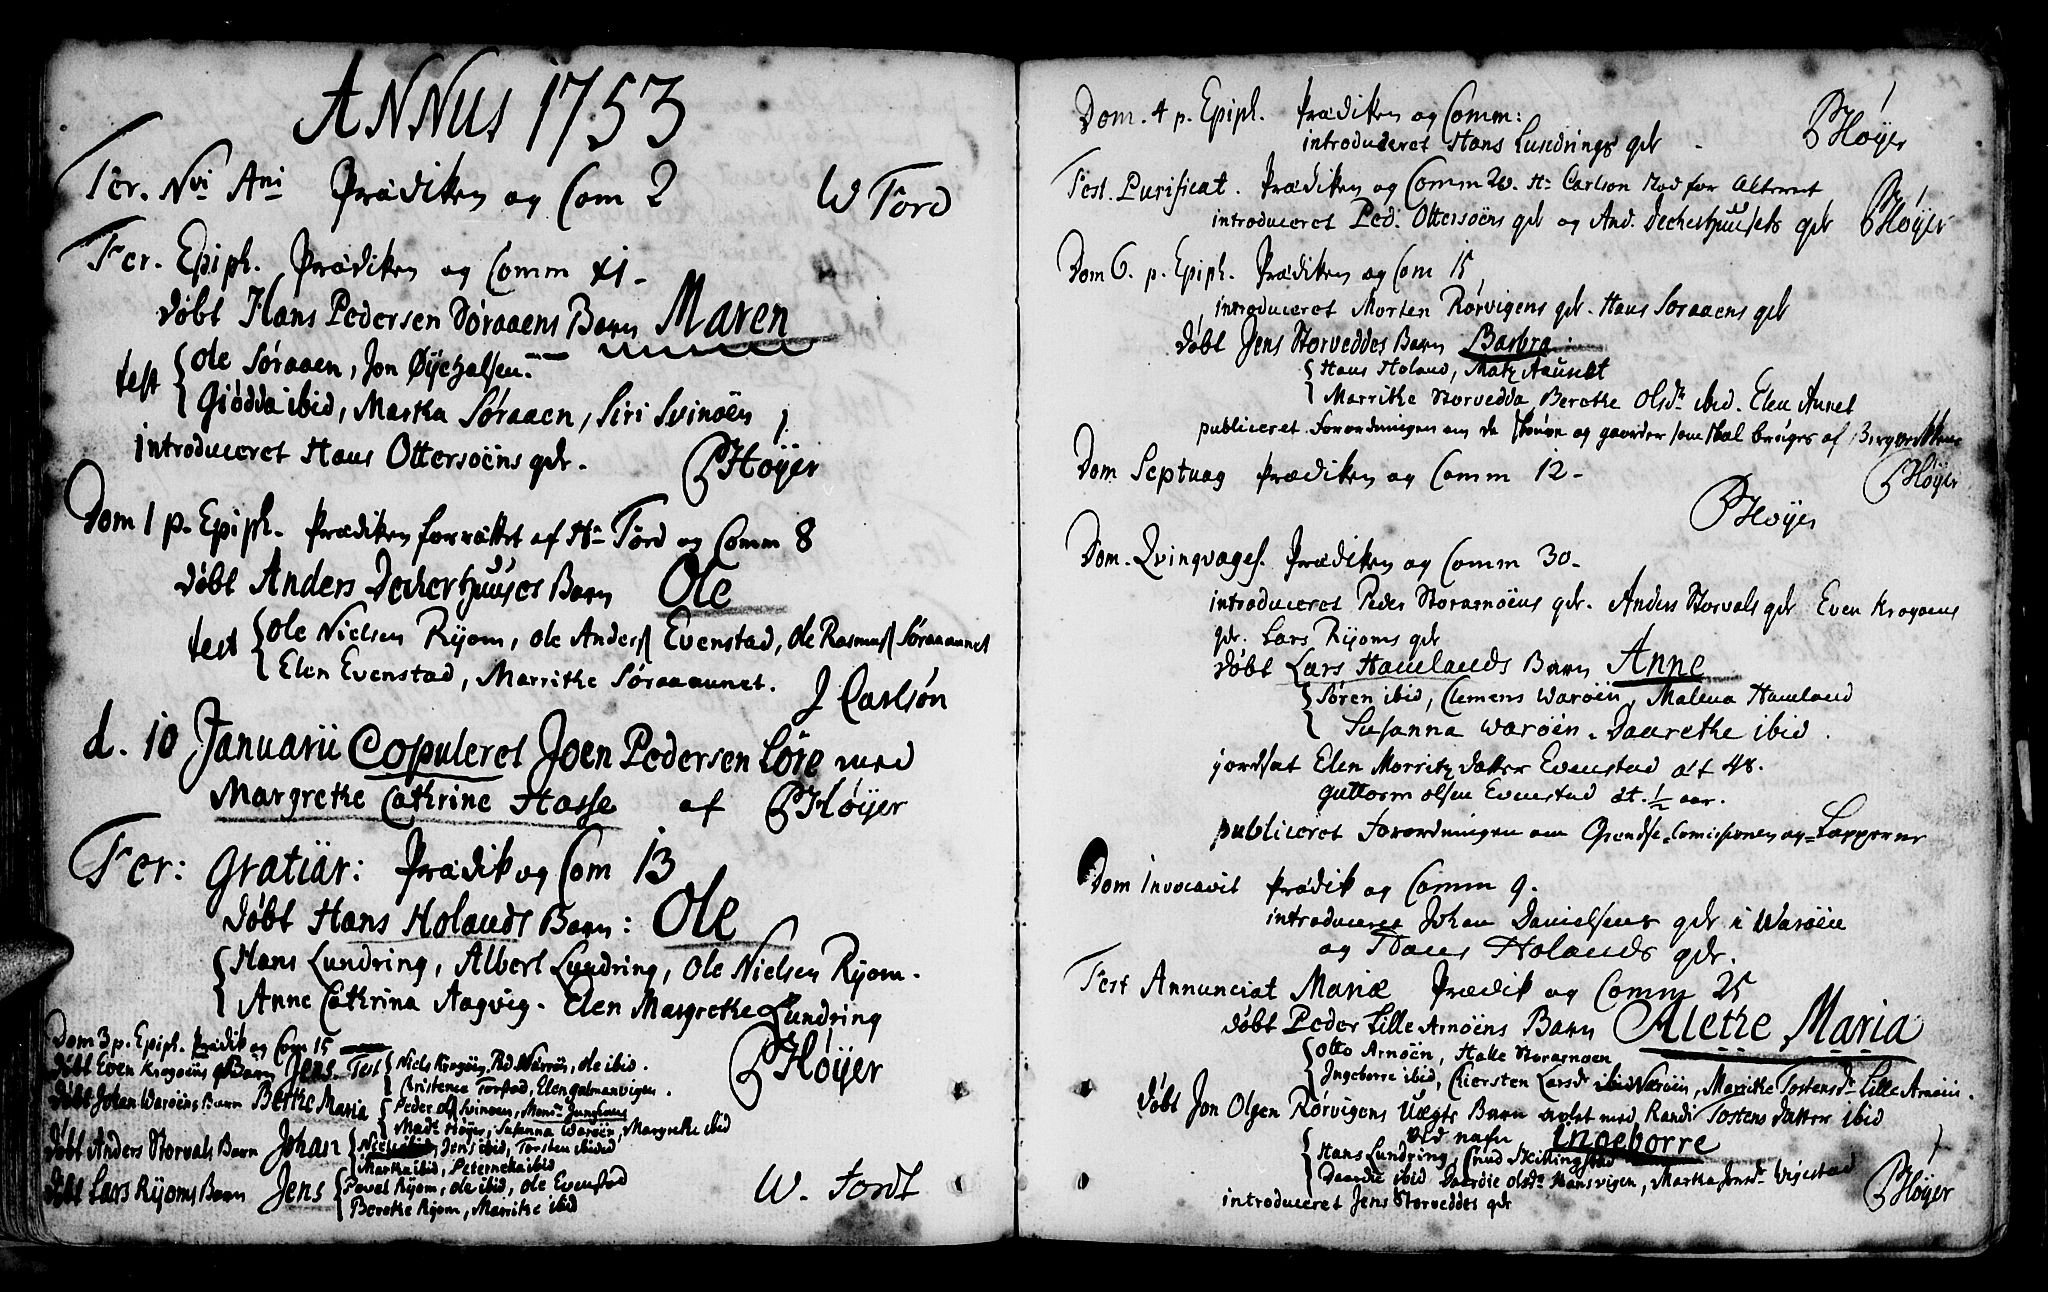 ANNUS 1753
Fer. Nvi Ani Prædiken og Com 2 W Ford
Fer. Epiph. Prædiken og Comm 41 -
døbt Hans Pedersen Søraaens Barn Maren
test Ole Søraaen, Jon Øyehalsen.
Giødda ibid, Marka Søraaen, Siri Svinøen
introduceret Hans Ottersøens qdr. PHøyer
Dom 1 p. Epiph. Prædiken forrættet af Hr Førd og Comm 8
døbt Anders Decherhuuses Barn Ole
test Ole Nielsen Ryom, Ole Anders Evenstad, Ole Rasmus Søraaunet
Elen Evenstad, Marrithe Søraaunet.
J Carlsøn
d. 10 Januarii Copuleret Joen PedersenLøre med
Margrethe Cathrine Hasse af PHøyer
Fer: Gratiar: Prædik og Com 13
døbt Hans Holands Barn: Ole
Hans Lundring, Albert Lundring, Ole Nielsen Ryom.
Anne Cathrina Aagvig. Elen Margrethe Lundring
PHøyer
Dom 3 p. Epiph. Prædik og Com 15
døbt Even Krogøens Barn Jens. Test Niels Krogøn, Ped Warøn, Ole ibid.
Christence Torstad, Elen galmanvigen.
døbt Johan Warøens Barn Bethe Maria Peder Ols Svinøen, Monsr Junghans
Madm Høyer, Susanna Warøen, Margrethe ibid
døbt Anders Storvals Barn Johan Jens ibid, Torsten ibid
Marka ibid, Peterneka ibid
døbt Lars Ryoms Barn Jens Povel Ryom, Ole ibid, Ole Evenstad
Berethe Ryom, Marrithe ibid
W. Fordt
Dom. 4 p. Epiph. Prædiken og Comm:
introduceret Hans Lundrings qdr PHøyer
Fest. Purificat. Prædiken og Comm 20. Hr Carlson stod for Alteret
introduceret Ped. Ottersøens qdr og And. Decherhuusets qdr PHøyer
Dom 6. p. Epiph. Prædiken og Com 15
introduceret Morten Rørvigens qdr. Hans Søraaens qdr
døbt Jens Storveddes Barn Barbra.
Hans Holand, Matz Aunet
Marrithe Storvedda Berethe Olsdr ibid. Elen Aunet
publiceret Forordningen om de skouve og gaarder som skal bruges af Bergverkkene
Dom Septuag Prædiken og Comm 12 - PHøyer
PHøyer
Dom. Qvinqvages. Prædiken og Comm 30 -
introduceret Peder Storarnøens qdr. Anders Storvals qdr Even Krogøens
qdr. Lars Ryoms qdr
døbt Lars Hamlands Barn Anne
Søren ibid, Clemens Warøen, Malena Hamland
Susanna Warøen, Daarethe ibid.
jordsat Elen Morritz datter Evenstad æt 48.
Guttorm Olsen Evenstad æt. 1/2 aar.
publiceret Forordningen om Grendse-Comissionen og Lapperne
Dom Invocavit Prædik og Comm 9.
introduceret Johan Danielsens qdr i Warøen
og Hans Holands qdr.
Fest Annunciat Mariæ Prædik og Comm 25
døbt Peder Lille Arnøens Barn Alethe Maria
Otto Arnøen, Halle Storarnøen
Ingeborre ibid, Chiersten Larsdr Warøen, Marithe Tostensdr Lille Arnøen.
døbt Jon Olsen Rørvigens Uægte Barn avlet med Randi Tostens datter ibid
ved nafn Ingeborre
Hans Lundring, Cnud Skillingstad
Daardie ibid Daardie Olsdr Hansvigen, Marka Jensdr Vigestad
introduceret Jens Storveddes qdr PHøyer